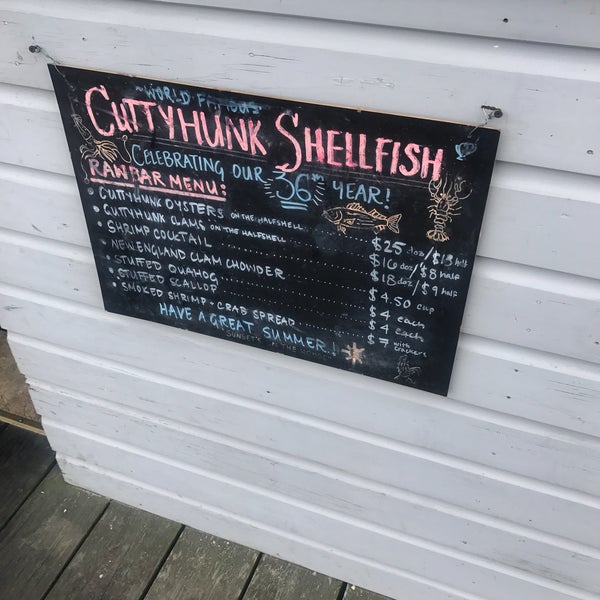 ~WORLD FAMOUS~
CUTTYHUNK SHELLFISH
CELEBRATING OUR 36th YEAR!
RAWBAR MENU:
• CUTTYHUNK OYSTERS ON THE HALFSHELL ........ $25 doz/$13 half
• CUTTYHUNK CLAMS ON THE HALFSHELL ........ $16 doz/$8 half
• SHRIMP COCKTAIL ........ $18 doz/$9 half
• NEW ENGLAND CLAM CHOWDER ........ $4.50 cup
• STUFFED QUAHOG ........ $4 each
• STUFFED SCALLOP ........ $4 each
• SMOKED SHRIMP + CRAB SPREAD ........ $7 with crackers
HAVE A GREAT SUMMER!